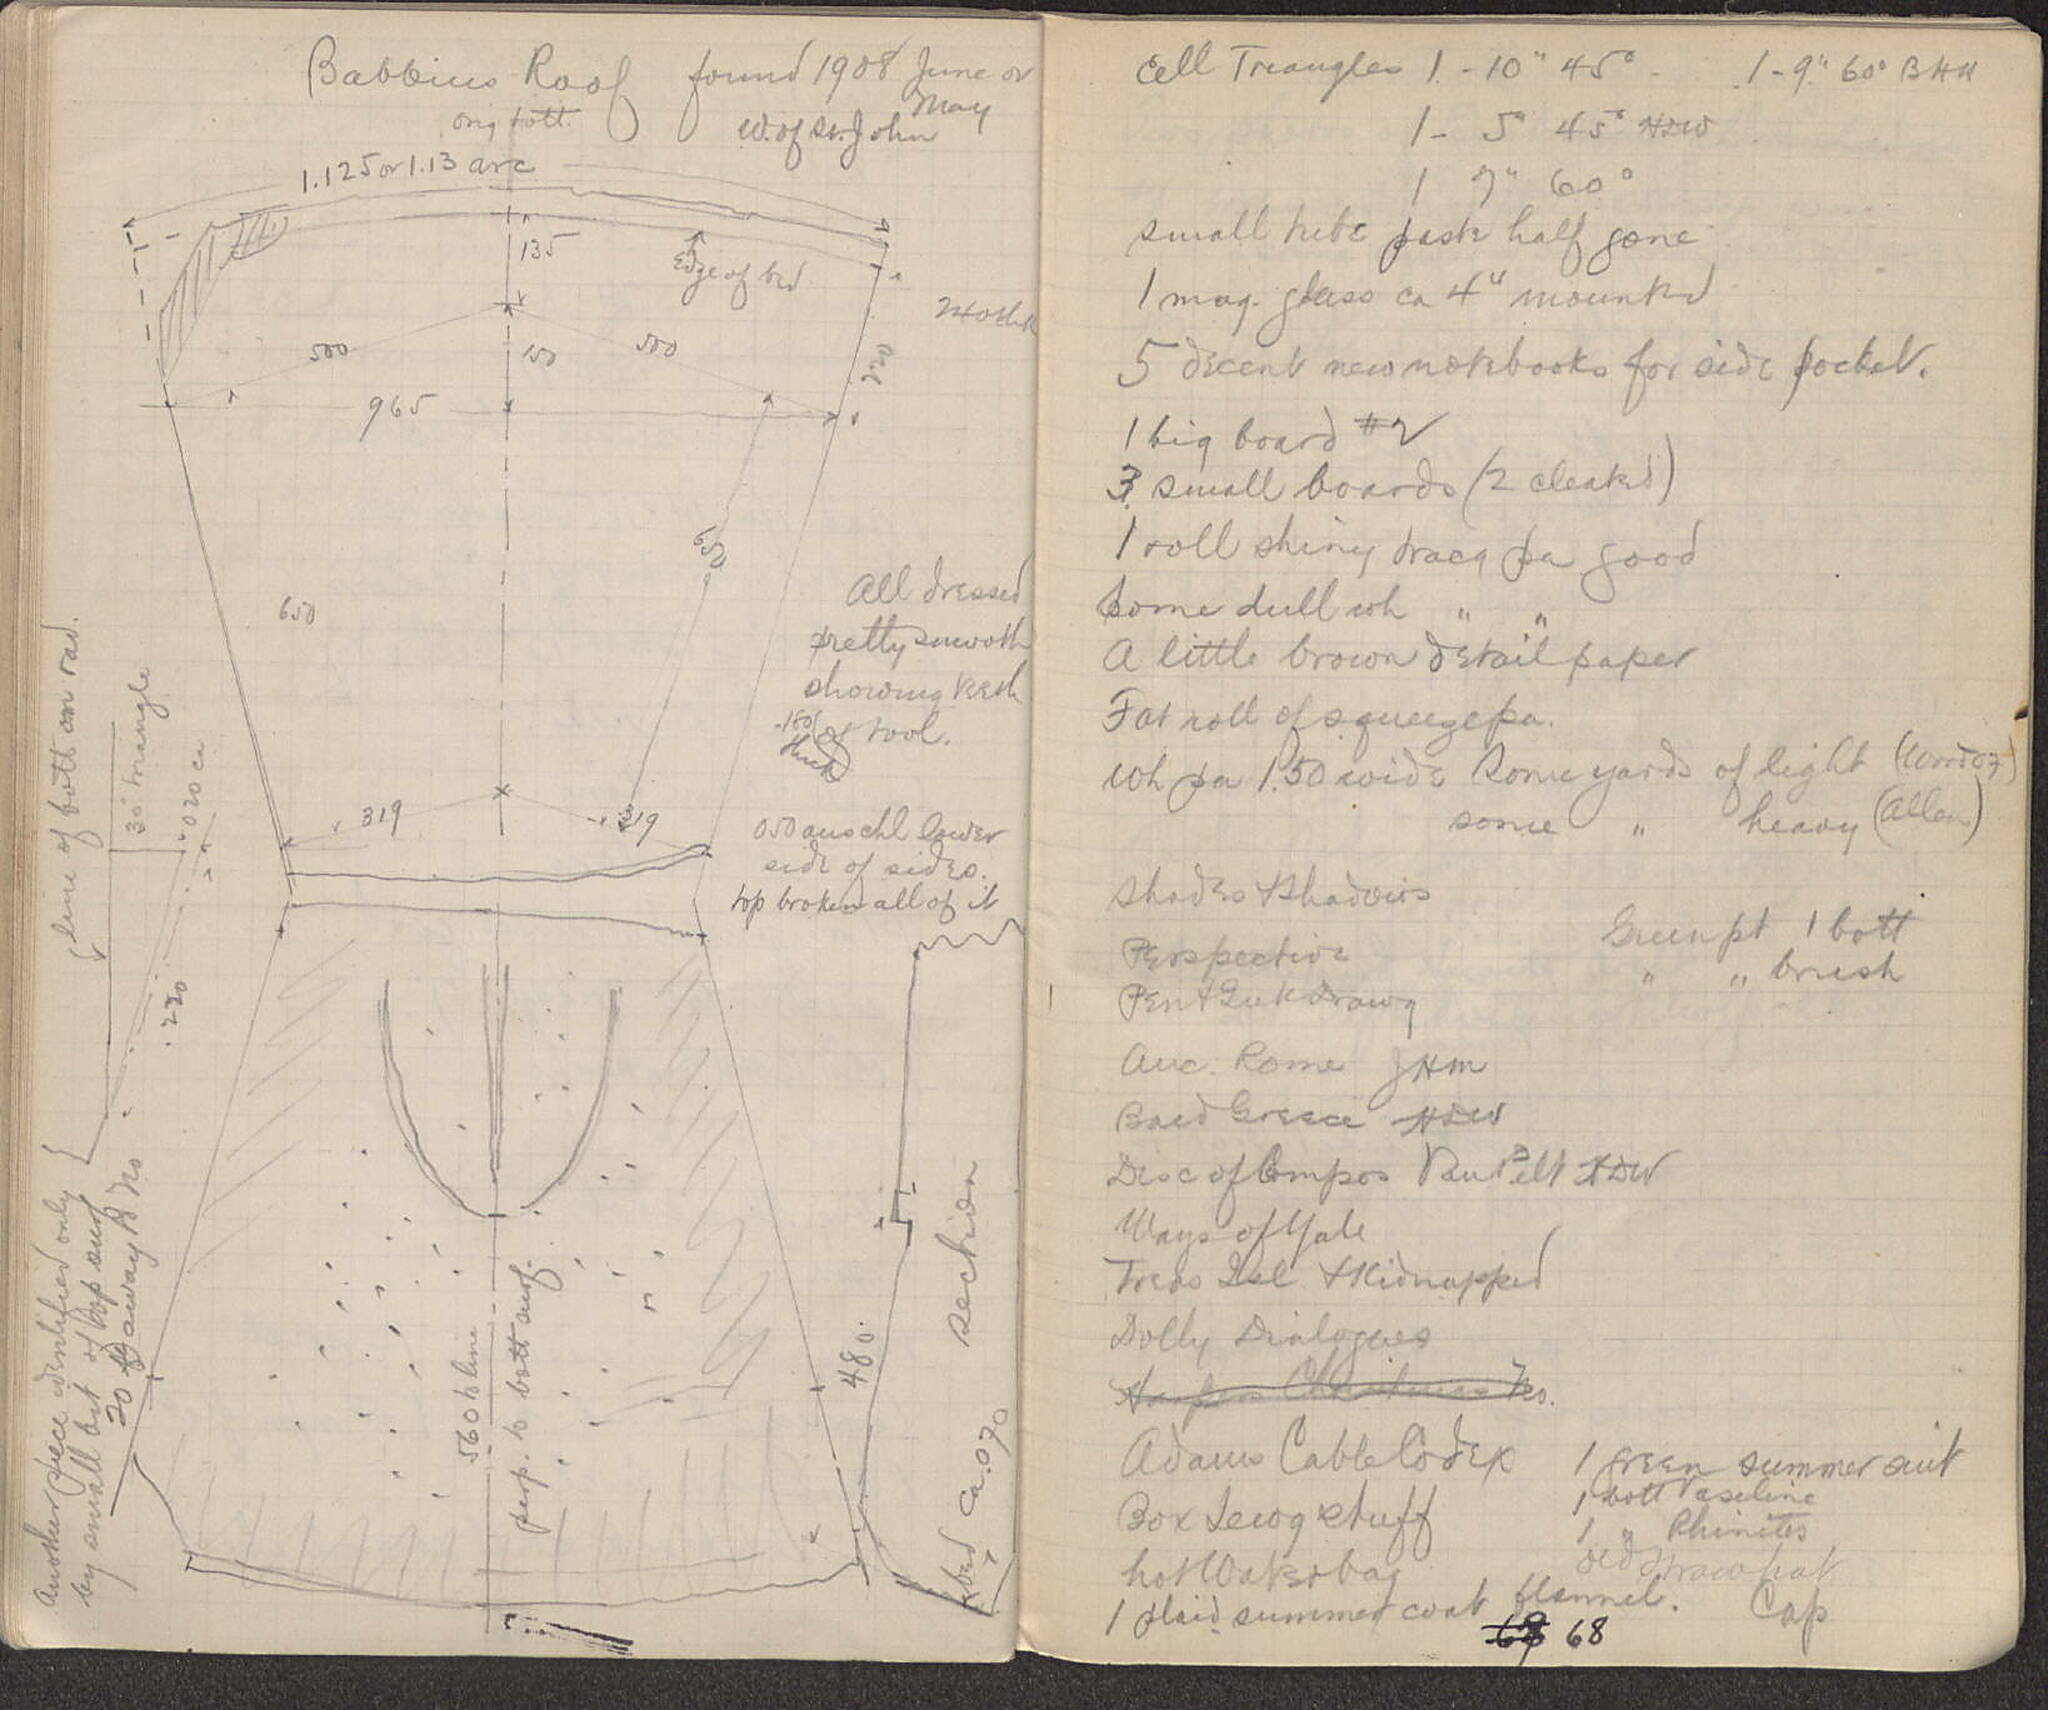 Babbius Roof found 1908 June or
May
orig bott. W. of St. John
1.125 or 1.13 arc
135
Edge of bed
500
150
500
220
965
650
650
All dressed
pretty smooth
showing teeth
of tool.
.180
thick
319
319
050 anschl lower
side of sides.
top broken all of it
line of bott on rad.
30° triangle
020 ca
.220
Another piece identified only
by small bit of top surf
20 ft away
560 to line
perp. to bott surf.
480.
Section
bed ca .070
Cell Triangles 1 - 10" 45° 1 - 9" 60° BHH
1 - 5" 45° HDW
1 7" 60°
small tube paste half gone
1 mag. glass ca 4" mounted
5 decent new notebooks for side pocket.
1 big board #2
3 small boards (2 cleated)
1 roll shiny tracg pa good
some dull wh " "
A little brown detail paper
Fat roll of squeeze pa.
wh pa 1.50 wide Some yards of light
some " heavy (Allen)
Shades & Shadows
Greenpt 1 bott
Perspective
" " brush
Pen & Ink Drawg
Anc. Rome JHM
Baed Greece HDW
Disc of Compos Van Pelt HDW
Ways of Yale
Treas Isl & Kidnapped
Dolly Dialogues
Harpers Christmas No.
Adams Cable Codex 1 green summer suit
1 bott Vaseline
Box Sewg stuff 1 " Rhinitis
old straw hat
hot Water bag
1 plaid summer coat flannel. Cap
68